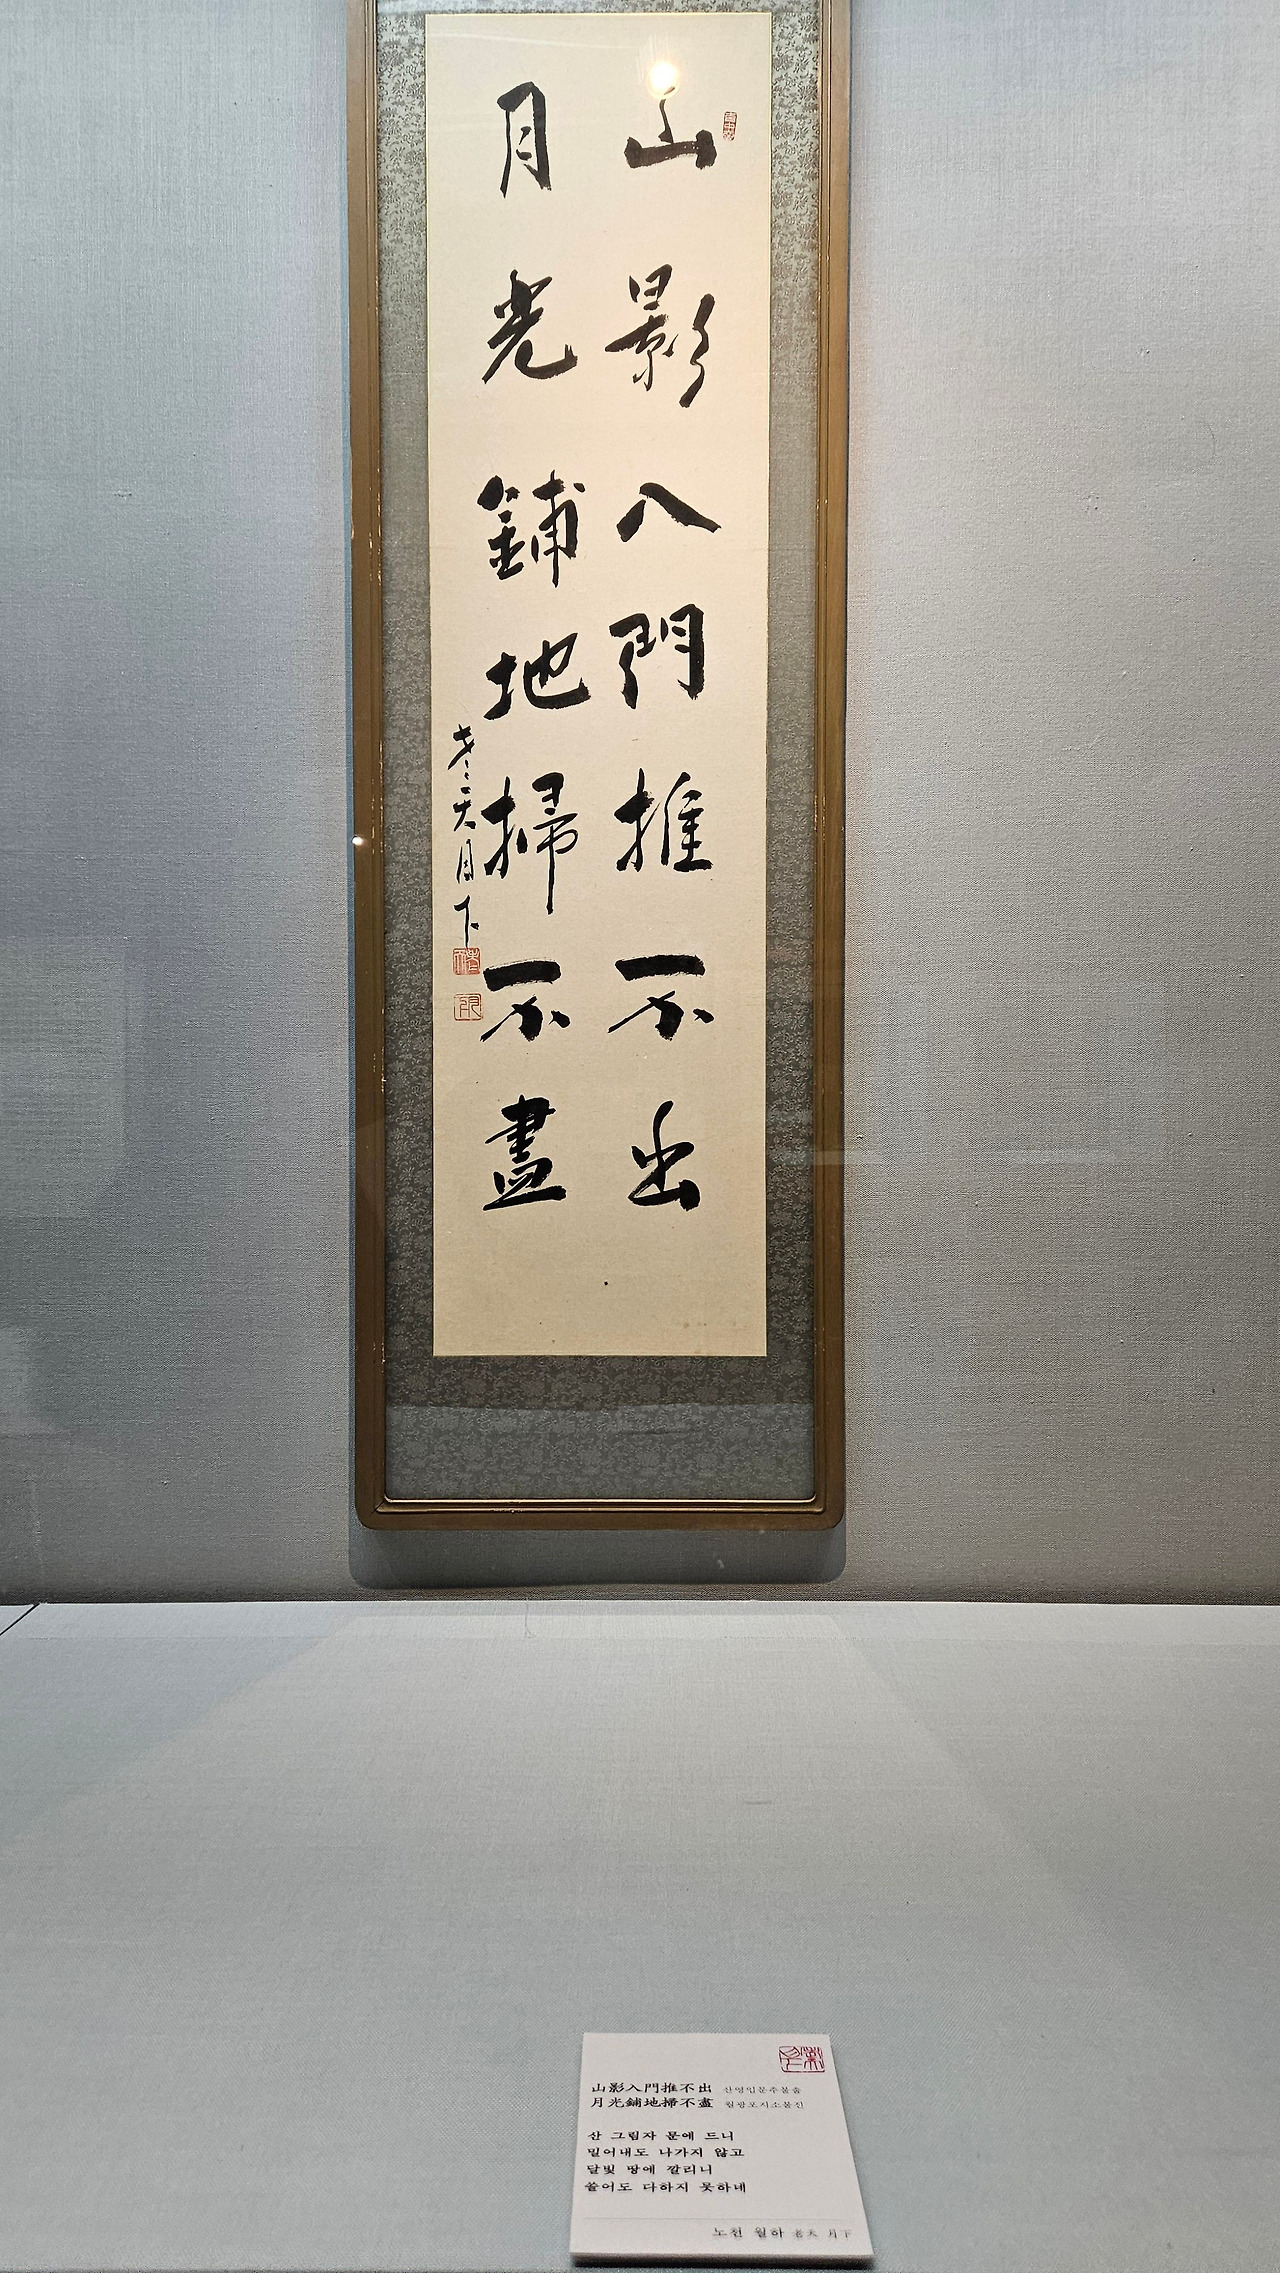 山影入門推不出
月光鋪地掃不盡
老天月下
山影入門推不出 산영입문추불출
月光鋪地掃不盡 월광포지소불진
산 그림자 문에 드니
밀어내도 나가지 않고
달빛 땅에 깔리니
쓸어도 다하지 못하네
노천 월하 老天 月下